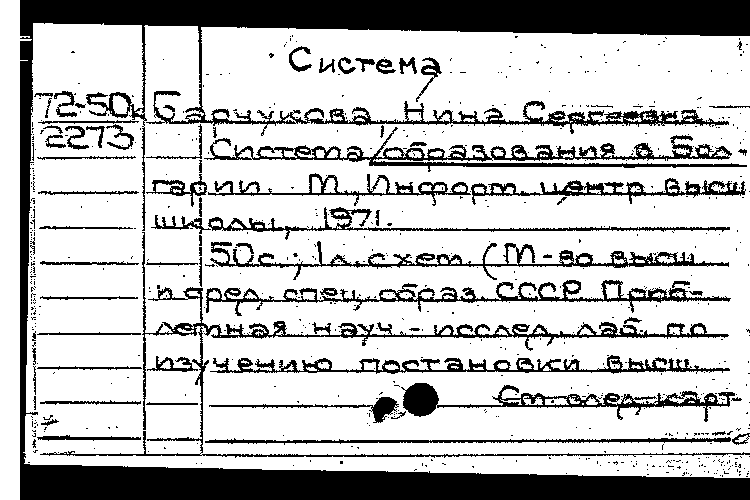 Система
72-50к Барчукова Нина Сергеевна
2273 Система образования в Бол-
гарии. М., Информ. центр высш
школы, 1971.
50 с.; 1 л. схем. (М-во высш.
и сред. спец. образ. СССР Проб-
лемная науч.-исслед. лаб. по
изучению постановки высш.
См. след. карт